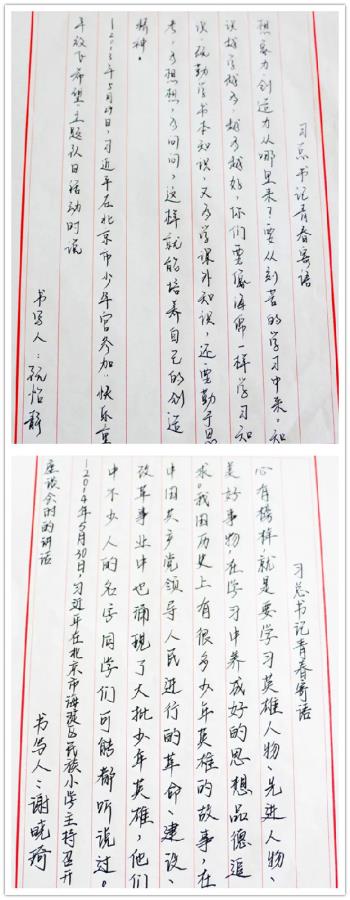 习总书记青春寄语
想象力、创造力从哪里来？要从刻苦的学习中来。知
识越学越多，越多越好，你们要像海绵一样学习知
识。既勤学书本知识，又多学课外知识，还要勤于思
考，多想想，多问问，这样就能培养自己的创造
精神。
—2013年5月29日，习近平在北京市少年宫参加“快乐童
年放飞希望”主题队日活动时说
书写人：阮怡
习总书记青春寄语
心有榜样，就是要学习英雄人物、先进人物、
美好事物，在学习中养成好的思想品德追
求。我国历史上有很多少年英雄的故事，在
中国共产党领导人民进行的革命、建设、
改革事业中也涌现了大批少年英雄，他们
中不少人的名字同学们可能都听说过。
—2014年5月30日，习近平在北京市海淀区民族小学主持召开
座谈会时的讲话
书写人：谢晓琦